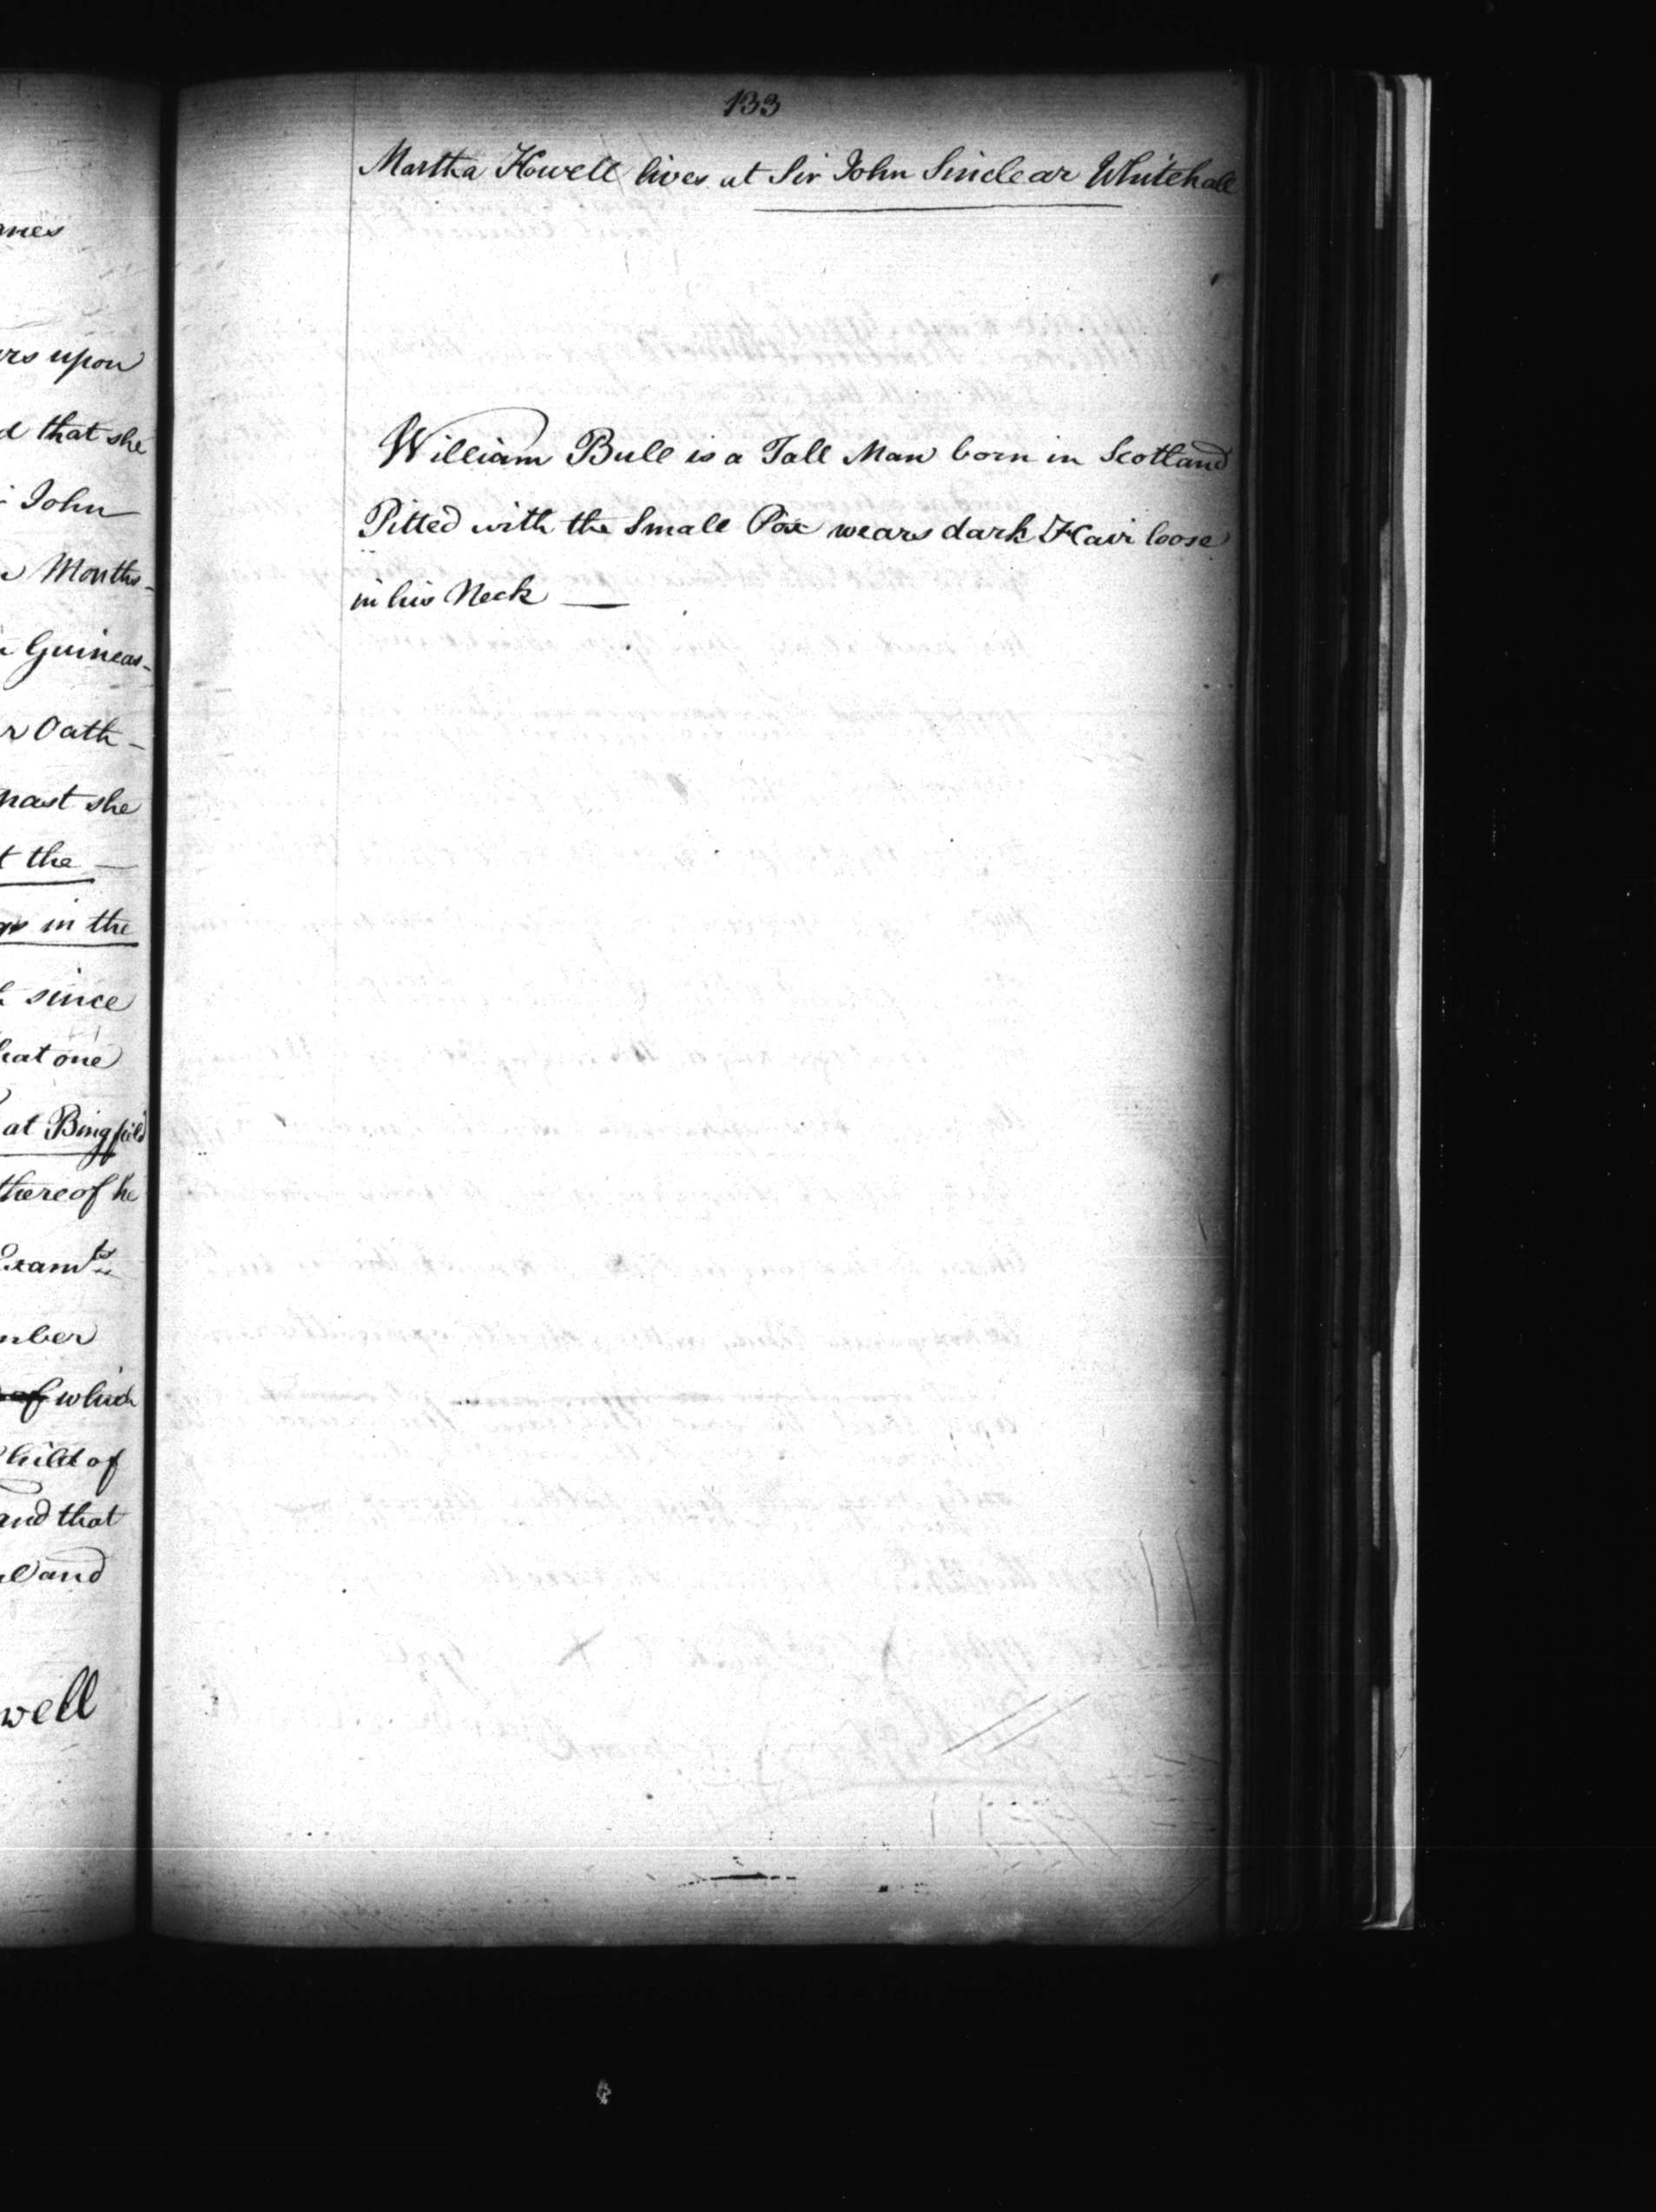 mes
rs upon
d that she
John
Months
Guineas
r Oath
past she
t the
in the
since
hat one
at Bingfield
thereof he
Exam.ts
mber
of which
Child of
and that
and
well
133
Martha Howell lives at Sir John Sinclear Whitehall
William Bull is a Tall Man born in Scotland
Pitted with the Small Pox wears dark Hair loose
in his Neck —